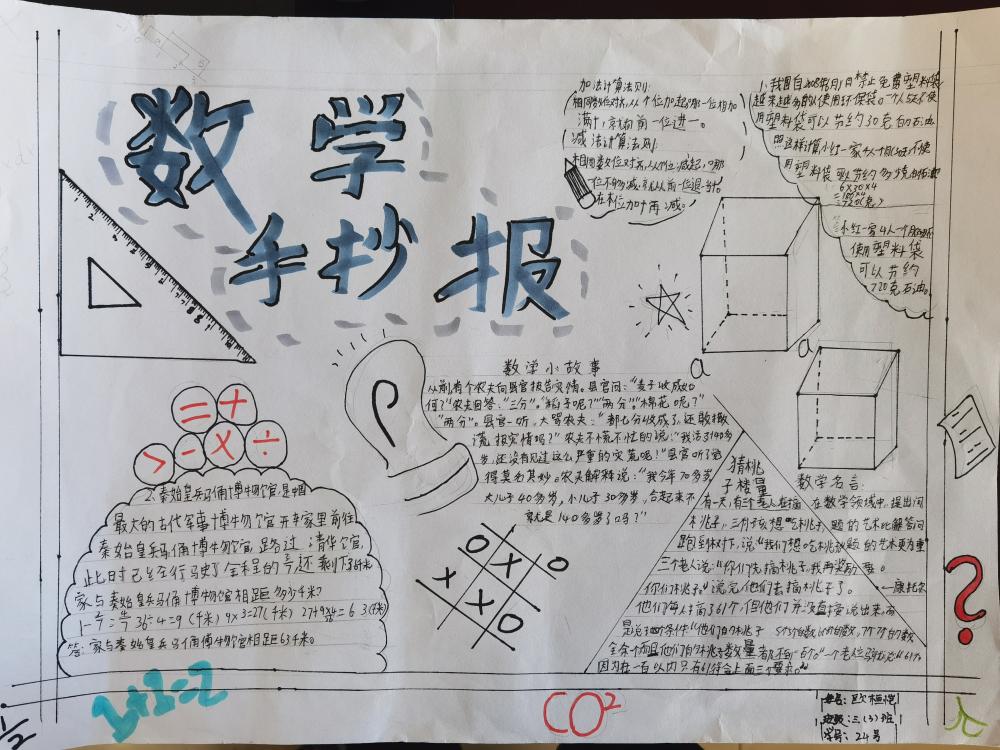 数学
手抄报
加法计算法则:
相同数位对齐,从个位加起,哪一位相加
满十,就向前一位进一。
减法计算法则:
相同数位对齐,从个位减起,哪
位不够减,就从前一位退一,
在本位加十再减。
1.我国自2008年6月1日禁止免费塑料袋
越来越多的人使用环保袋。一个人与不使
用塑料袋可以节约30克的石油
照这样计算小红一家4人一个月不使
用塑料袋可以节约多少克的石油
6×30×4
=180×4
=720(克)
答:小红一家4人一个月不
使用塑料袋
可以节约
720克石油。
a
a
数学小故事
从前,有个农夫向县官报告灾情。县官问:“麦子收成如
何?”农夫回答:“三分”。“稻子呢?”“两分”。“棉花呢?”
“两分”。县官一听,大骂农夫:“都七分收成了,还敢撒
谎报灾情吗?”农夫不慌不忙的说:“我活了140多
岁,还没有见过这么严重的灾荒呢!”县官听了觉
得莫名其妙。农夫解释说:“我今年70多岁,
大儿子40多岁,小儿子30多岁,合起来不
就是140多岁了吗?”
= +
> - × ÷
2.秦始皇兵马俑博物馆,是中国
最大的古代军事博物馆 开车家里前往
秦始皇兵马俑博物馆,路过 清华宫,
此时已经行驶了全程的 还剩下36千米
家与秦始皇兵马俑博物馆相距多少千米?
36÷4=9(千米) 9×3=27(千米) 27+36=63(千米)
答:家与秦始皇兵马俑博物馆相距63千米。
O X O
X X
O
猜桃
子数量
有一天,有三个老人在摘
桃子,三个孩子想吃桃子,
跑到树下,说“我们想吃桃
三个老人说:“你们先摘桃子,我再奖励
你们桃子。”说完他们去摘桃子了。
他们每人摘了61个,但他们并没直接说出来,而
是说了四个条件
全余一,而且他们的桃子数量都不到
因为在一百以内只有61符合上面三个要求。
数学名言:
在数学领域中,提出问
题的艺术比解答问
题的艺术更为重
要。
←康托尔
?
1/2
1+1=2
CO²
姓名:欧桓恺
班级:三(3)班
学号:24号